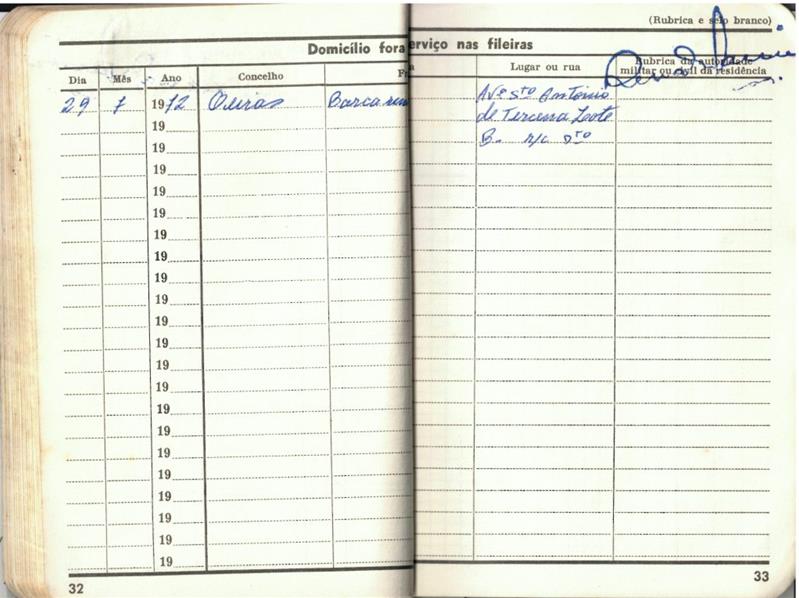 (Rubrica e selo branco)
Domicílio fora erviço nas fileiras
Dia Mês Ano Concelho Fr a Lugar ou rua Rubrica da autoridade
militar ou civil da residência
29 7 1972 Oeiras Barcarena Avª Stº António
19 de Tercena Leote
19 B. r/c Dto
19
19
19
19
19
19
19
19
19
19
19
19
19
19
19
19
19
19
19
32
33